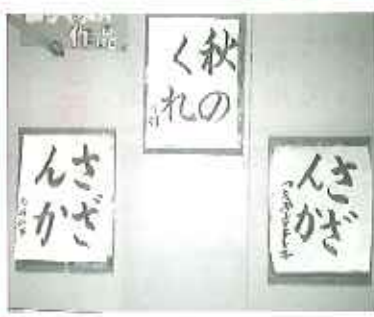 作品
秋の
くれ
さざ
んか
さざ
んか